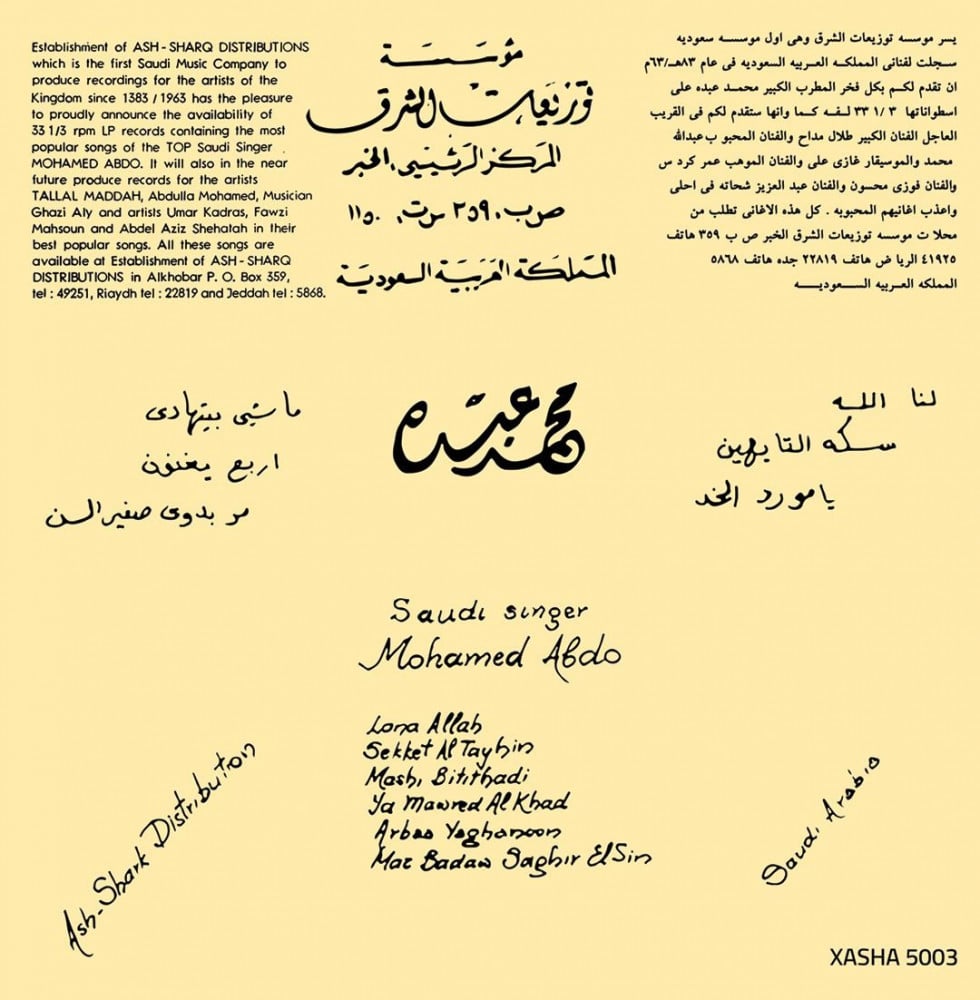 Establishment of ASH-SHARQ DISTRIBUTIONS
which is the first Saudi Music Company to
produce recordings for the artists of the
Kingdom since 1383 / 1963 has the pleasure
to proudly announce the availability of
33 1/3 rpm LP records containing the most
popular songs of the TOP Saudi Singer
MOHAMED ABDO. It will also in the near
future produce records for the artists
TALLAL MADDAH, Abdulla Mohamed, Musician
Ghazi Aly and artists Umar Kadras, Fawzi
Mahsoun and Abdel Aziz Shehatah in their
best popular songs. All these songs are
available at Establishment of ASH-SHARQ
DISTRIBUTIONS in Alkhobar P. O. Box 359,
tel : 49251, Riaydh tel : 22819 and Jeddah tel : 5868.
مؤسسة
توزيعات الشرق
المركز الرئيسي، الخبر
ص ب، ٣٥٩ س ت، ١١٥٠
المملكة العربية السعودية
يسر موسسه توزيعات الشرق وهى اول موسسه سعوديه
سجلت لفنانى المملكه العربيه السعوديه فى عام ٨٣هـ/٦٣م
ان تقدم لكم بكل فخر المطرب الكبير محمد عبده على
اسطواناتها ٣ /١ ٣٣ لفه كما وانها ستقدم لكم فى القريب
العاجل الفنان الكبير طلال مداح والفنان المحبو ب عبدالله
محمد والموسيقار غازى على والفنان الموهب عمر كرد س
والفنان فوزى محسون والفنان عبد العزيز شحاته فى احلى
واعذب اغانيهم المحبوبه . كل هذه الاغانى تطلب من
محلا ت موسسه توزيعات الشرق الخبر ص ب ٣٥٩ هاتف
٤١٩٢٥ الريا ض هاتف ٢٢٨١٩ جده هاتف ٥٨٦٨
المملكه العربيه السعوديه
لنا الله
سكه التايهين
يامورد الخد
محمد عبده
ماشي بيتهادى
اربع يغنون
مر بدوى صغير السن
Saudi singer
Mohamed Abdo
Lana Allah
Sekket Al Tayhin
Mashi Bitithadi
Ya Mawred Al Khad
Arbaa Yaghanoon
Mar Badaw Saghir El Sin
Ash-Shark Distribution
Saudi Arabia
XASHA 5003